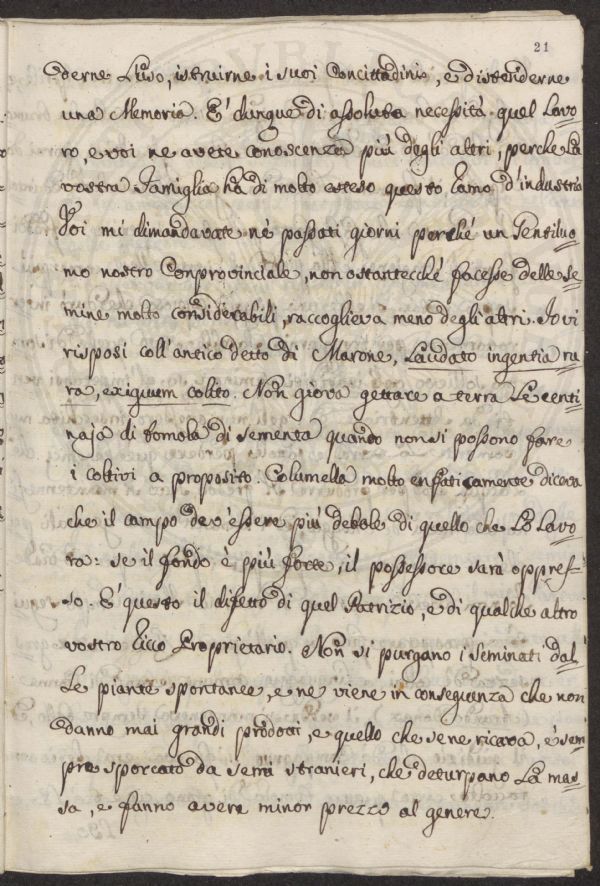 21
derne l'uso, istruirne i suoi Concittadini, e distenderne
una Memoria. E' dunque di assoluta necessità quel Lavo-
ro, e voi ne avete conoscenza più degli altri, perche la
vostra Famiglia ha di molto esteso questo ramo d'industria
Voi mi dimandavate ne' passati giorni perché un Gentiluo-
mo nostro Conprovinciale, non ostantecché facesse delle se-
mine molto considerabili, raccoglieva meno degli altri. Io vi
risposi coll'antico detto di Marone, Laudato ingentia ru-
ra, exiguum colito. Non giova gettare a terra le centi-
naja di tomola di sementa quando non si possono fare
i coltivi a proposito. Columella molto enfaticamente diceva
che il campo dev'essere più debole di quello che lo lavo-
ra: se il fondo è più forte, il possessore sarà oppres-
so. E' questo il difetto di quel Patrizio, e di qualche altro
vostro ricco Proprietario. Non si purgano i seminati dal-
le piante spontanee, e ne viene in conseguenza che non
danno mai grandi prodotti, e quello che se ne ricava, è sem-
pre sporcato da semi stranieri, che deturpano la mas-
sa, e fanno avere minor prezzo al genere.